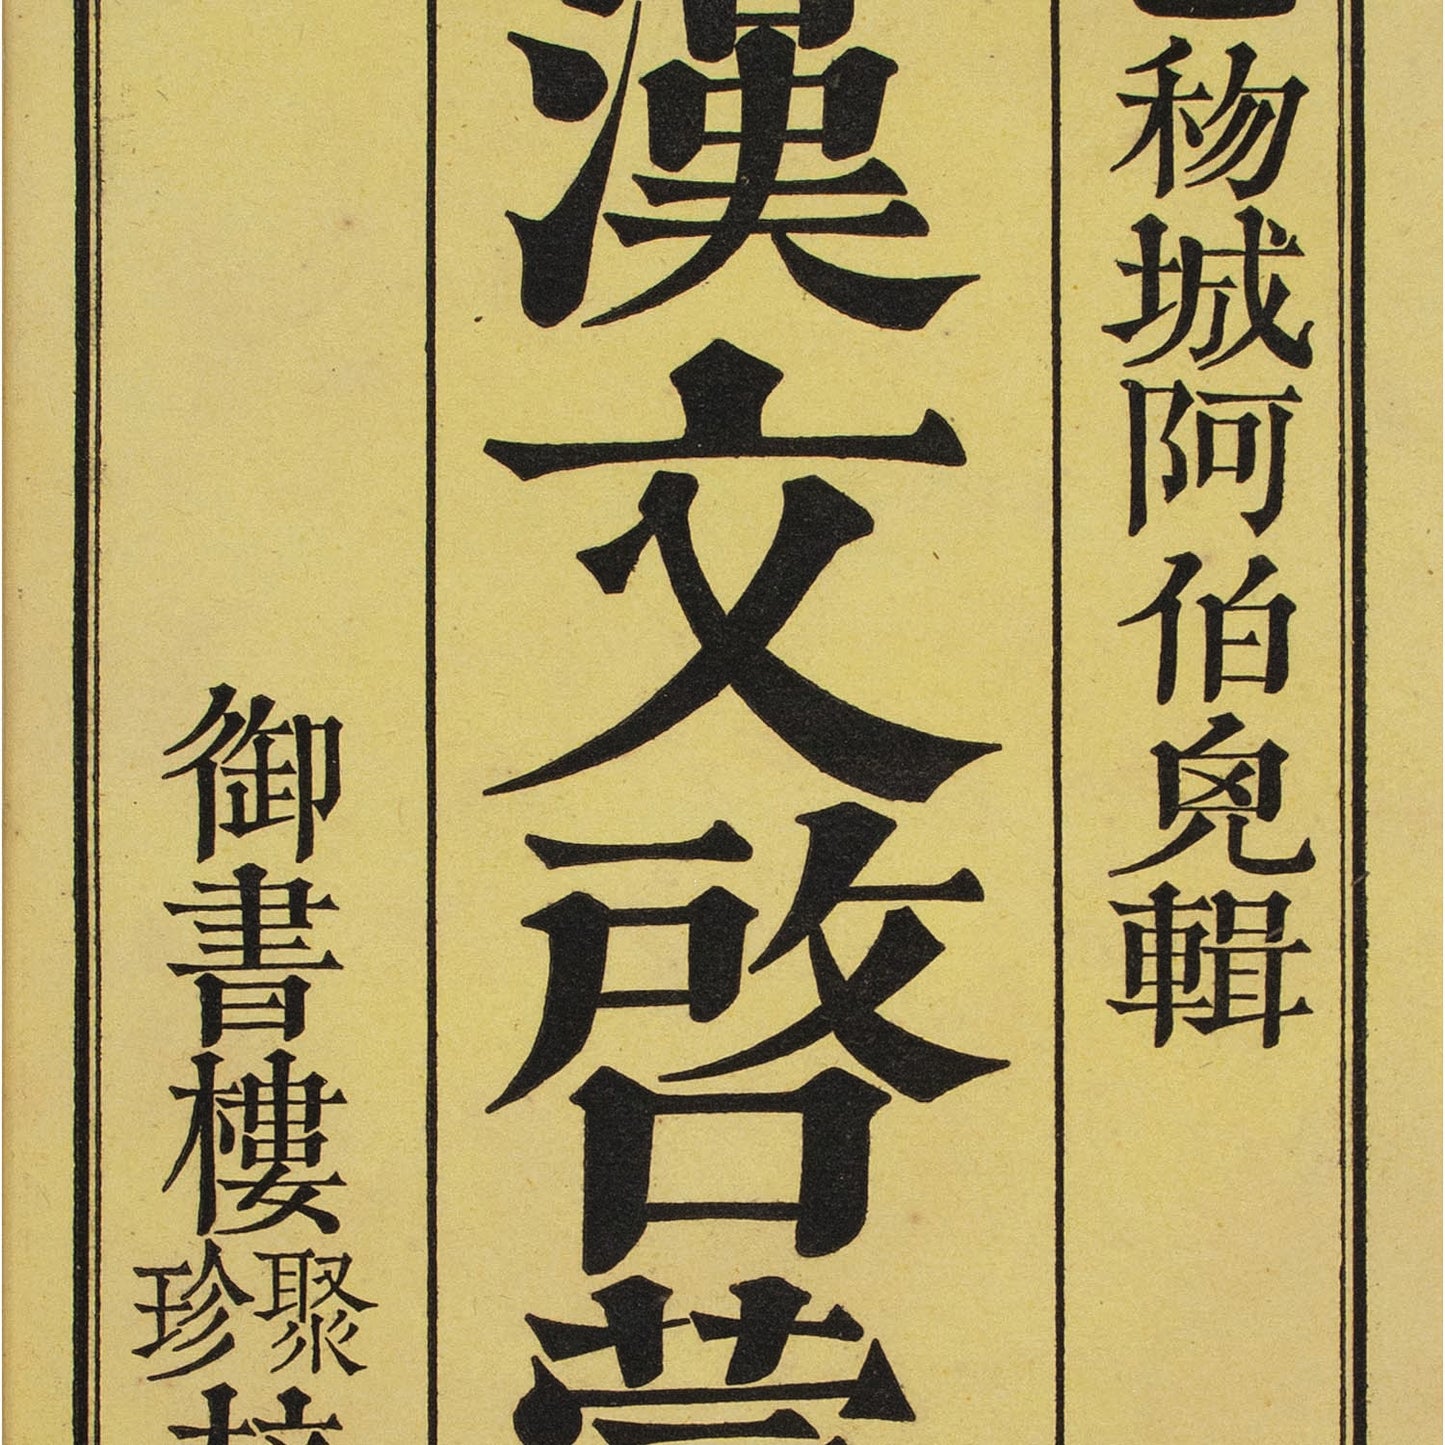 𥝢城阿伯兒輯
漢文啓蒙
御書樓聚珍